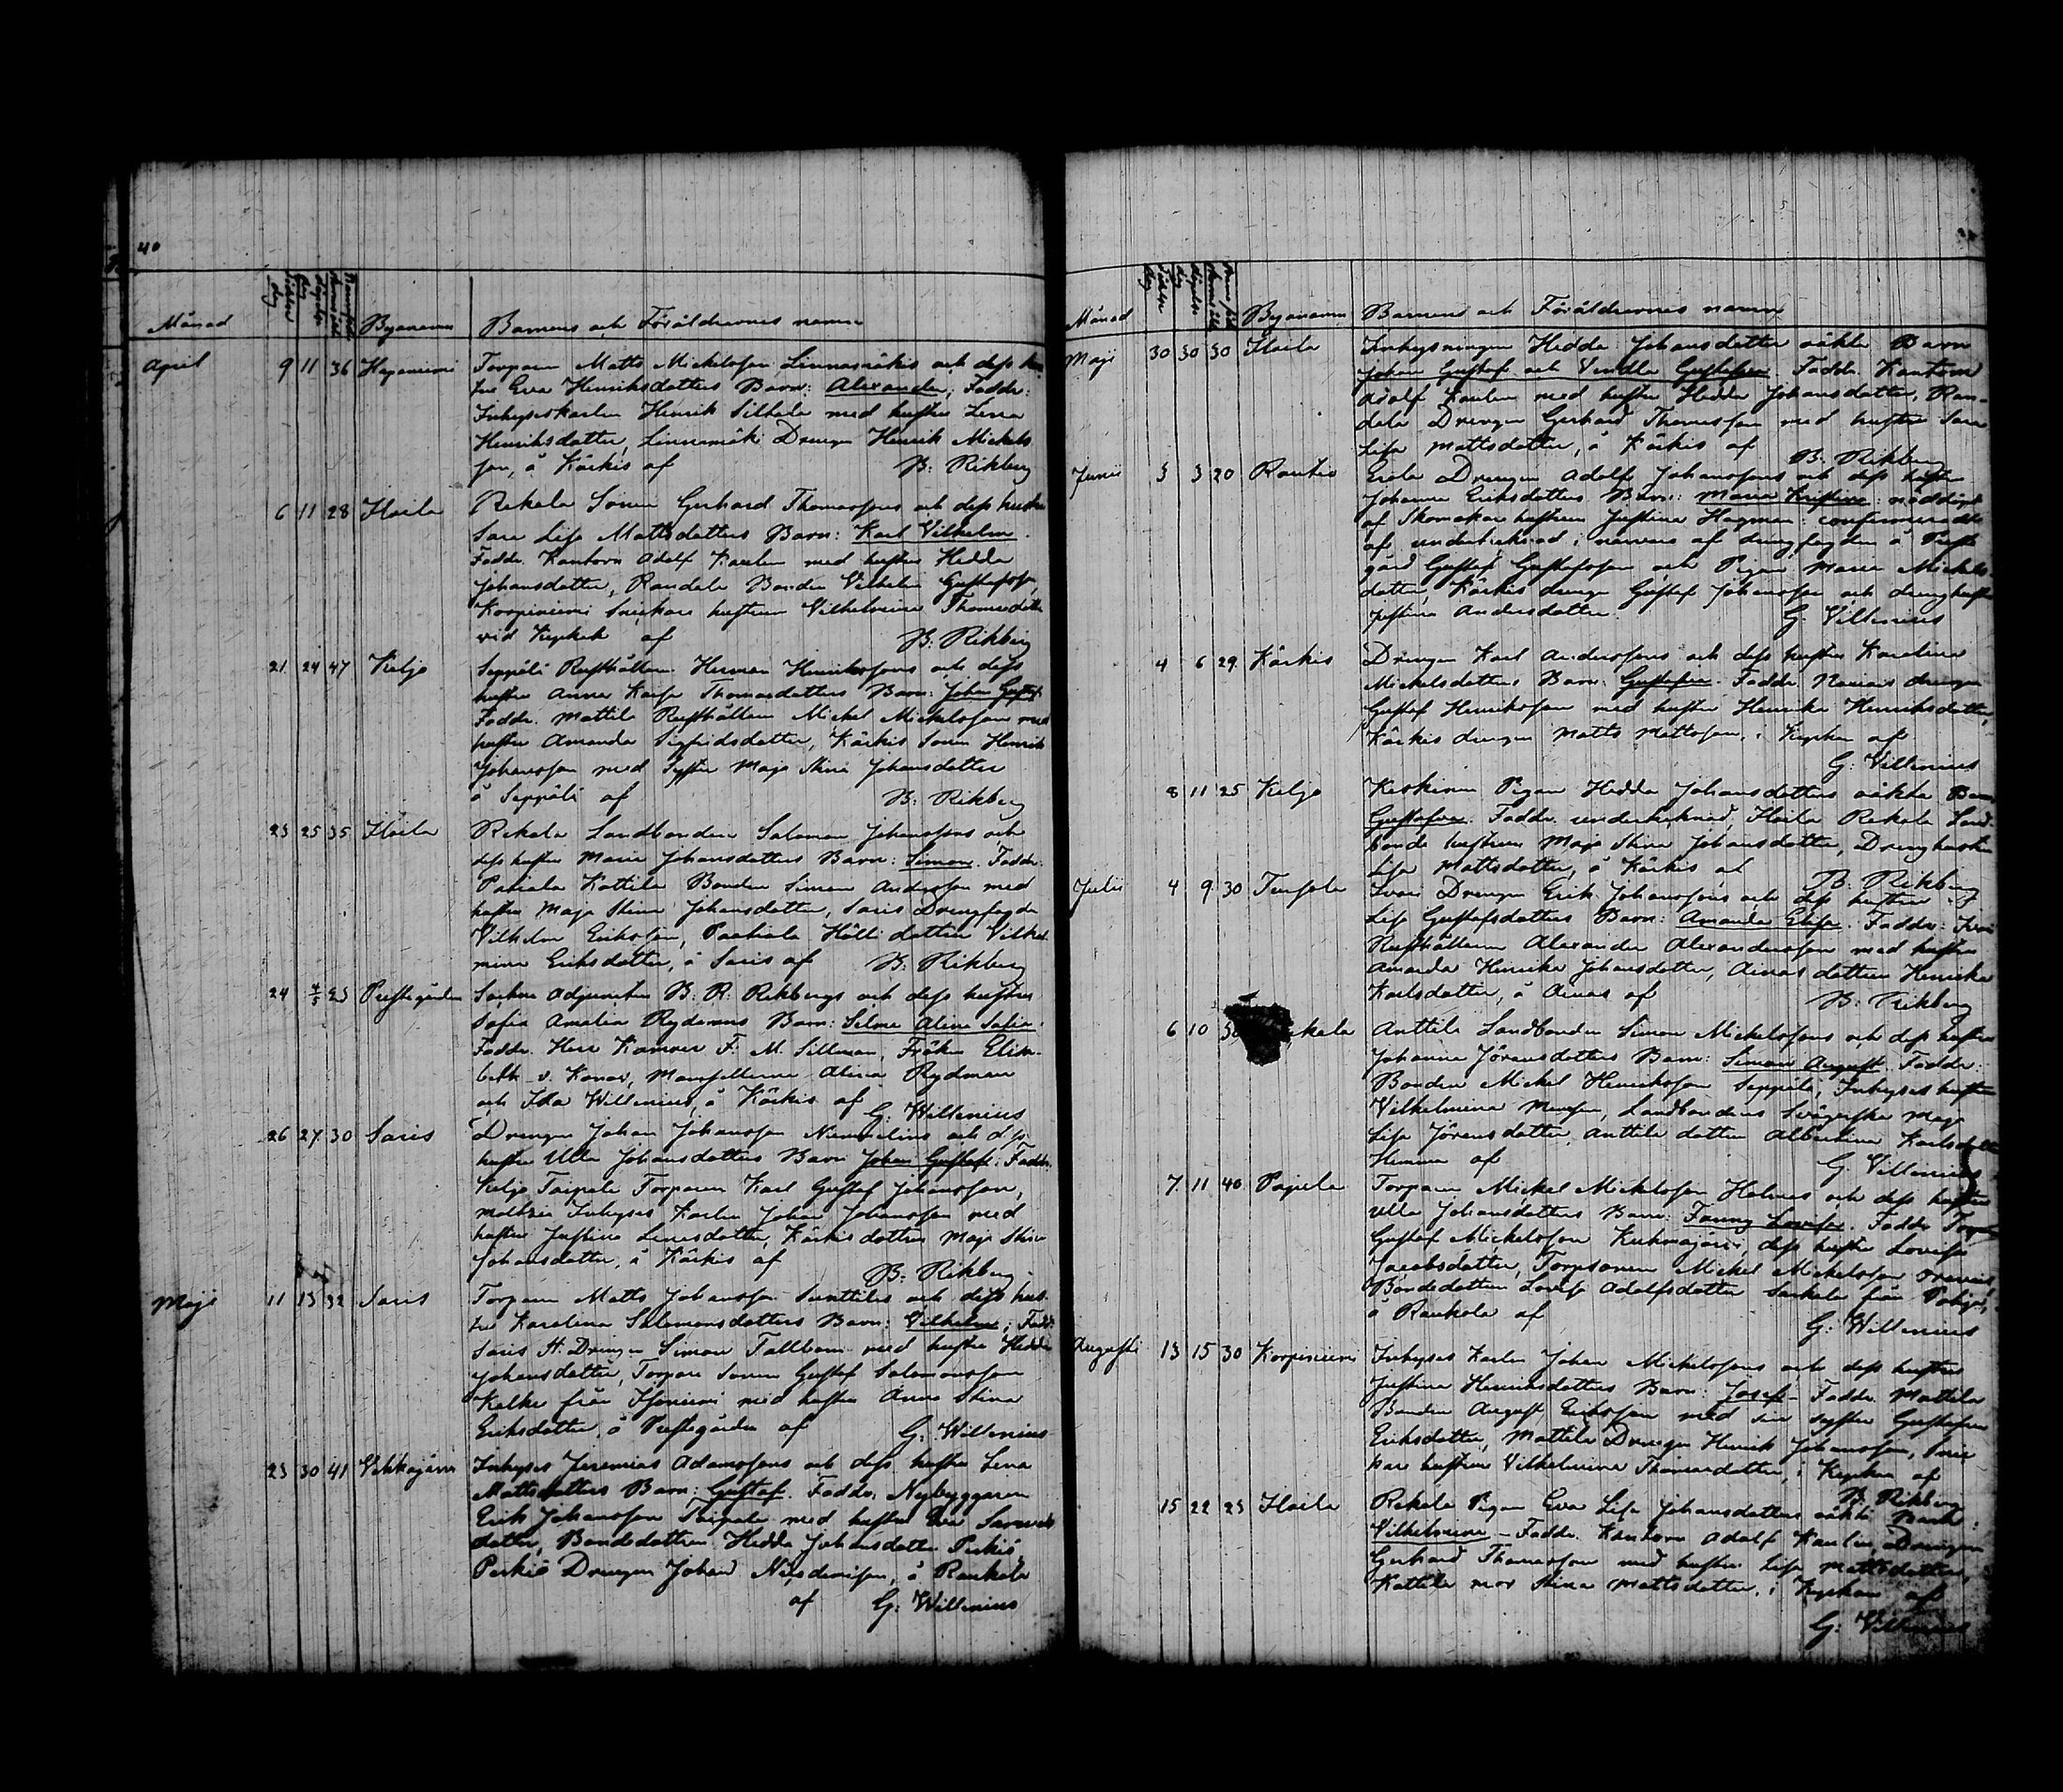 40
Månad Byanamn Barnens och Föräldrarnes namn
April 9 11 36 Haganiemi Torparen Matts Mickelsson Linnamäkis och dess hu
tru Eva Henriksdotters Barn: Alexander, Faddr:
Inhyseskarlen Henrik Silkala med hustru Lena
Henriksdotter, Linnamäki Drengen Henrik Mickels
son, å Kärkis af B. Rikberg
6 11 28 Haila Rekola Sonen Gerhard Thomassons och dess hustru
Sara Lisa Mattsdotters Barn: Karl Vilhelm.
Faddr. Kantorn Adolf Kaulin med hustru Hedda
Johansdotter, Randala Bonden Vilhelm Gustafsson,
Korpiniemi Snickare hustrun Vilhelmina Thomasdotter
vid Kyrkan af B. Rikberg
21 24 47 Kuljo Seppälä Rusthållaren Herman Henrikssons och dess
hustru Anna Kajsa Thomasdotters Barn: Johan Gustaf
Faddr. Mattila Rusthållaren Mickel Mickelsson med
hustru Amanda Sigfridsdotter, Kärkis Sonen Henrik
Johansson med Syster Maja Stina Johansdotter
å Seppälä af B. Rikberg
23 25 35 Haila Rekola Landbonden Salomon Johanssons och
dess hustru Maria Johansdotters Barn: Simon. Faddr.
Kottila Bonden Simon Andersson med
hustru Maja Stina Johansdotter, Saris Drengfogden
Vilhelm Eriksson, Hölli dottren Vilhel
mina Eriksdotter, å Saris af B. Rikberg
24 4/5 23 Prestgården Sockne Adjuncten B. R. Rikbergs och dess hustrus
Sofia Amalia Rydmans Barn: Selma Alina Sofia.
Faddr. Herr Kamrer F. M. Sillman, Fröken Elisa-
beth v. Konow, Mamsellerna Alina Rydman
och Ida Willenius, å Kärkis af G. Willenius
26 27 30 Saris Drengen Johan Johansson Nummelins och dess
hustru Ulla Johansdotters Barn Johan Gustaf. Faddr.
Kuljo Taipale Torparen Karl Gustaf Johansson,
Inhyses Karlen Johan Johansson med
hustru Justina Lenasdotter, Kärkis dottren Maja Stina
Johansdotter, å Kärkis af B. Rikberg.
Maji 11 13 32 Saris Torparen Matts Johansson Junttilas och dess hus
tru Karolina Salomonsdotters Barn: Vilhelm; Faddr.
Saris St. Drengen Simon Tallbom med hustru Hedda
Johansdotter, Torpare Sonen Gustaf Salomonsson
Kalke från med hustru Anna Stina
Eriksdotter, å Prestgården af G. Willenius
23 30 41 Vehkajärvi Inhyses Jeremias Adamssons och dess hustru Lena
Mattsdotters Barn: Gustaf. Faddr. Nybyggaren
Erik Johansson Taipale med hustru Eva
dotter, Bondedottren Hedda Johansdotter Perkiö
Perkiö Drengen Johan å Raukola
af G: Willenius
Månad Byanamn Barnens och Föräldrarnes namn
Maji 30 30 30 Haila Inhysningen Hedda Johansdotters oäkta Barn
Johan Gustaf och Vendla Gustafva. Faddr. Kantorn
Adolf Kaulin med hustru Hedda Johansdotter, Ran-
dala Drengen Gerhard Thomasson med hustru Sara
Lisa Mattsdotter, å Kärkis af B. Rikberg
Junii 3 3 20 Rautio Erola Drengen Adolf Johanssons och dess hustru
Johanna Eriksdotters Barn: Maria Kristina: nöddöpt
af Skomakare hustrun Justina Hagman: confirmeradt
af undertecknad, i närvaro af drengfogden å Prest
gård Gustaf Gustafsson och Pigan Maria Mickels-
dotter, Kärkis dreng Gustaf Johansson och drenghustru
Justina Andersdotter. G. Villenius
4 6 29 Kärkis Drengen Karl Anderssons och dess hustru Karolina
Mickelsdotters Barn: Gustafva. Faddr. drengen
Gustaf Henriksson med hustru Henrika Henriksdotter,
Kärkis drengen Matts Mattsson, i Kyrkan af
G. Villenius
8 11 25 Kuljo Keskinen Pigan Hedda Johansdotters oäkta Barn
Gustafva. Faddr. undertecknad, Haila Rekola Land-
bonde hustrun Maja Stina Johansdotter, Dreng hustrun
Lisa Mattsdotter, å Kärkis af B. Rikberg
Julii 4 9 30 Drengen Erik Johanssons och dess hustru
Lisa Gustafsdotters Barn: Amanda Elisa. Faddr:
Rusthållaren Alexander Alexandersson med hustru
Amanda Henrika Johansdotter, Ainas dottren Henrika
Karlsdotter, å Ainas af B. Rikberg
6 10 Anttila Landbonden Simon Mickelssons och dess hustru
Johanna Jöransdotters Barn: Simon August. Faddr:
Bonden Mickel Henriksson Seppälä, Inhyses hustrun
Vilhelmina Landbondens Svägerska Maja
Lisa Jöransdotter, Anttila dottren Albertina Karlsdotter
Hemma af G. Villenius
7 11 40 Pajula Torparen Mickel Mickelsson Holmas och dess hustru
Ulla Johansdotters Barn: Fanny Lovisa. Faddr.
Gustaf Mickelsson dess hustru Lovisa
Jacobsdotter, Torpsonen Mickel Mickelsson
Bondedottren Lovisa Adolfsdotter från
å Raukola af G: Willenius
Augusti 13 15 30 Korpiniemi Inhyses Karlen Johan Mickelssons och dess hustru
Justina Henriksdotters Barn: Josef - Faddr. Mattila
Bonden August Eriksson med sin syster Gustafva
Eriksdotter, Mattila Drengen Henrik Johansson, Snic
kare hustrun Vilhelmina Thomasdotter, i Kyrkan af
B. Rikberg
15 22 23 Haila Rekola Pigan Eva Lisa Johansdotters oäkta Barn:
Vilhelmina - Faddr. Kantorn Adolf Kaulin, Drengen
Gerhard Thomasson med hustru Lisa Mattsdotter,
Kottila mor Stina Mattsdotter, i Kyrkan af
G: Villenius